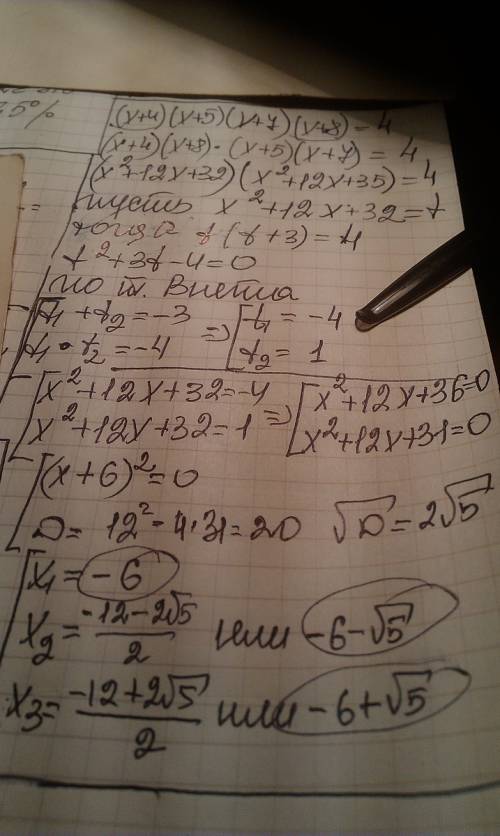 5%
(x+4)(x+5)(x+7)(x+8)=4
(x+4)(x+8)·(x+5)(x+7)=4
(x²+12x+32)(x²+12x+35)=4
пусть x²+12x+32=t
тогда t(t+3)=4
t²+3t-4=0
по т. Виета
t₁+t₂=-3 => t₁=-4
t₁·t₂=-4 t₂=1
x²+12x+32=-4 => x²+12x+36=0
x²+12x+32=1 x²+12x+31=0
(x+6)²=0
D=12²-4·31=20 √D=2√5
x₁=-6
x₂=(-12-2√5)/2 или -6-√5
x₃=(-12+2√5)/2 или -6+√5